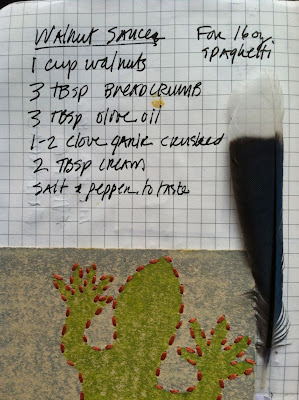 Walnut Sauce
For 16 oz
spaghetti
1 cup walnuts
3 TBSP BREADCRUMB
3 TBSP olove oil
1-2 clove garlic crushed
2 TBSP CREAM
Salt & pepper to taste